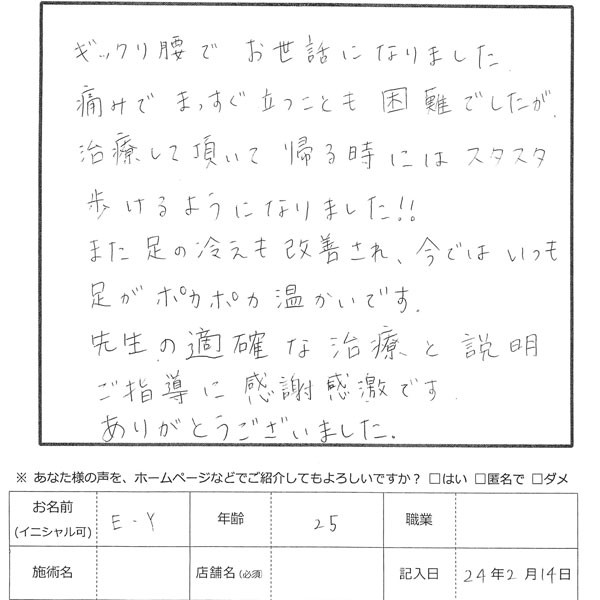 ギックリ腰で お世話になりました
痛みで まっすぐ立つことも 困難でしたが、
治療して頂いて 帰る時には スタスタ
歩けるようになりました!!
また足の冷えも改善され、今では いつも
足が ポカポカ 温かいです.
先生の適確な治療と説明
ご指導に 感謝感激です.
ありがとうございました.
※ あなた様の声を、ホームページなどでご紹介してもよろしいですか? □はい □匿名で □ダメ
お名前 (イニシャル可) E・Y 年齢 25 職業
施術名 店舗名(必須) 記入日 24年2月14日